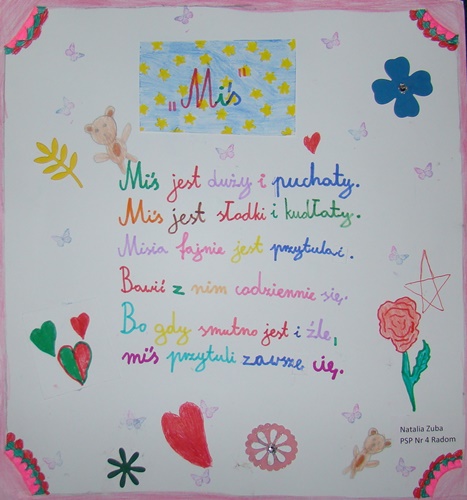 „Miś"
Miś jest duży i puchaty.
Miś jest słodki i kudłaty.
Misia fajnie jest przytulać.
Bawić z nim codziennie się.
Bo gdy smutno jest i źle,
miś przytuli zawsze cię.
Natalia Zuba
PSP Nr 4 Radom